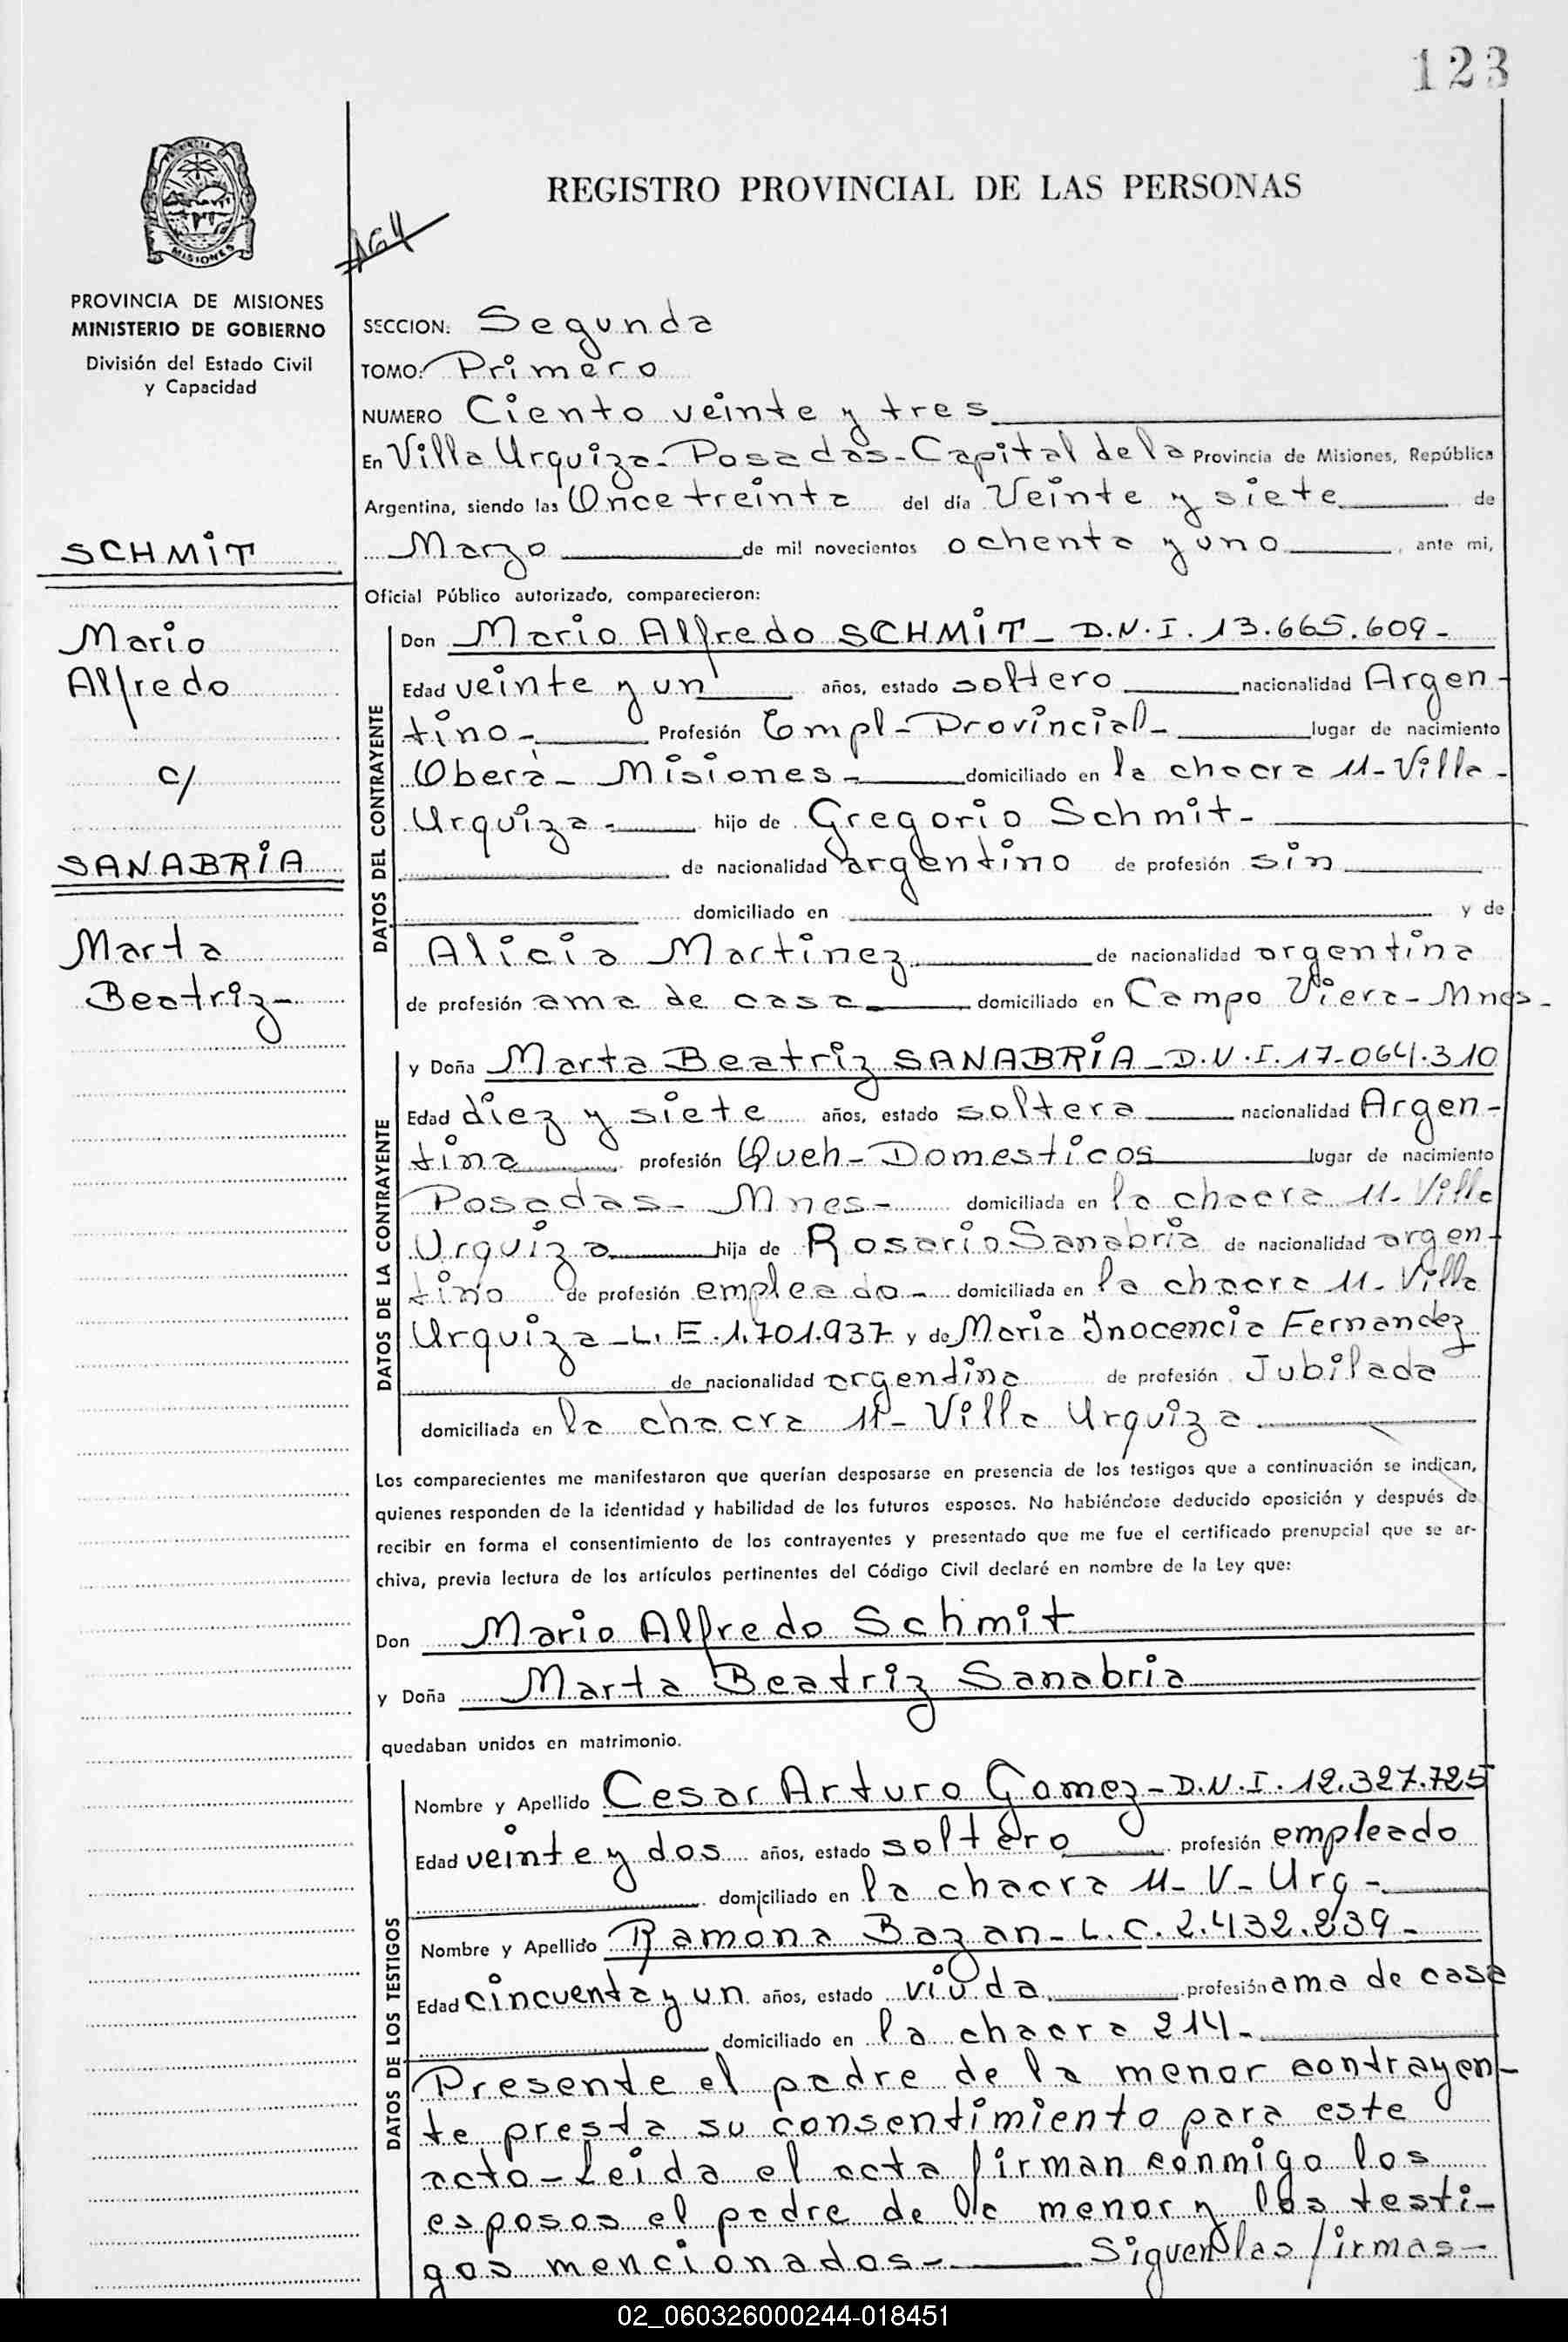 123
REGISTRO PROVINCIAL DE LAS PERSONAS
164
PROVINCIA
MISIONES
PROVINCIA DE MISIONES
MINISTERIO DE GOBIERNO
División del Estado Civil
y Capacidad
SCHMIT
Mario
Alfredo
c/
SANABRIA
Marta
Beatriz-
SECCION: Segunda
TOMO: Primero
NUMERO Ciento veinte y tres
En Villa Urquiza-Posadas-Capital de la Provincia de Misiones, República
Argentina, siendo las Once treinta del día Veinte y siete de
Marzo de mil novecientos ochenta y uno, ante mi,
Oficial Público autorizado, comparecieron:
DATOS DEL CONTRAYENTE
Don Mario Alfredo SCHMIT- D.N.I. 13.665.609-
Edad veinte y un años, estado soltero nacionalidad Argen-
tino- Profesión Empl-Provincial- lugar de nacimiento
Oberá- Misiones- domiciliado en la chacra 11-Villa-
Urquiza- hijo de Gregorio Schmit-
de nacionalidad argentino de profesión sin
domiciliado en y de
Alicia Martinez de nacionalidad argentina
de profesión ama de casa domiciliado en Campo Viera-Mnes-
DATOS DE LA CONTRAYENTE
y Doña Marta Beatriz SANABRIA-D.N.I.17-064.310
Edad diez y siete años, estado soltera nacionalidad Argen-
tina profesión Queh-Domesticos lugar de nacimiento
Posadas- Mnes- domiciliada en la chacra 11-Villa
Urquiza hija de Rosario Sanabria de nacionalidad argen-
tino de profesión empleado- domiciliada en la chacra 11-Villa
Urquiza-L.E.1.701.937 y de Maria Inocencia Fernandez
de nacionalidad argentina de profesión Jubilada
domiciliada en la chacra 11-Villa Urquiza
Los comparecientes me manifestaron que querían desposarse en presencia de los testigos que a continuación se indican,
quienes responden de la identidad y habilidad de los futuros esposos. No habiéndose deducido oposición y después de
recibir en forma el consentimiento de los contrayentes y presentado que me fue el certificado prenupcial que se ar-
chiva, previa lectura de los artículos pertinentes del Código Civil declaré en nombre de la Ley que:
Don Mario Alfredo Schmit
y Doña Marta Beatriz Sanabria
quedaban unidos en matrimonio.
DATOS DE LOS TESTIGOS
Nombre y Apellido Cesar Arturo Gomez-D.N.I. 12.327.725
Edad veinte y dos años, estado soltero profesión empleado
domiciliado en la chacra 11-V-Urq-
Nombre y Apellido Ramona Bazan-L.C.2.432.239-
Edad cincuenta y un años, estado viuda profesión ama de casa
domiciliado en la chacra 214-
Presente el padre de la menor contrayen-
te presta su consentimiento para este
acto-Leida el acta firman conmigo los
esposos el padre de la menor y los testi-
gos mencionados- Siguen las firmas-
02_060326000244-018451